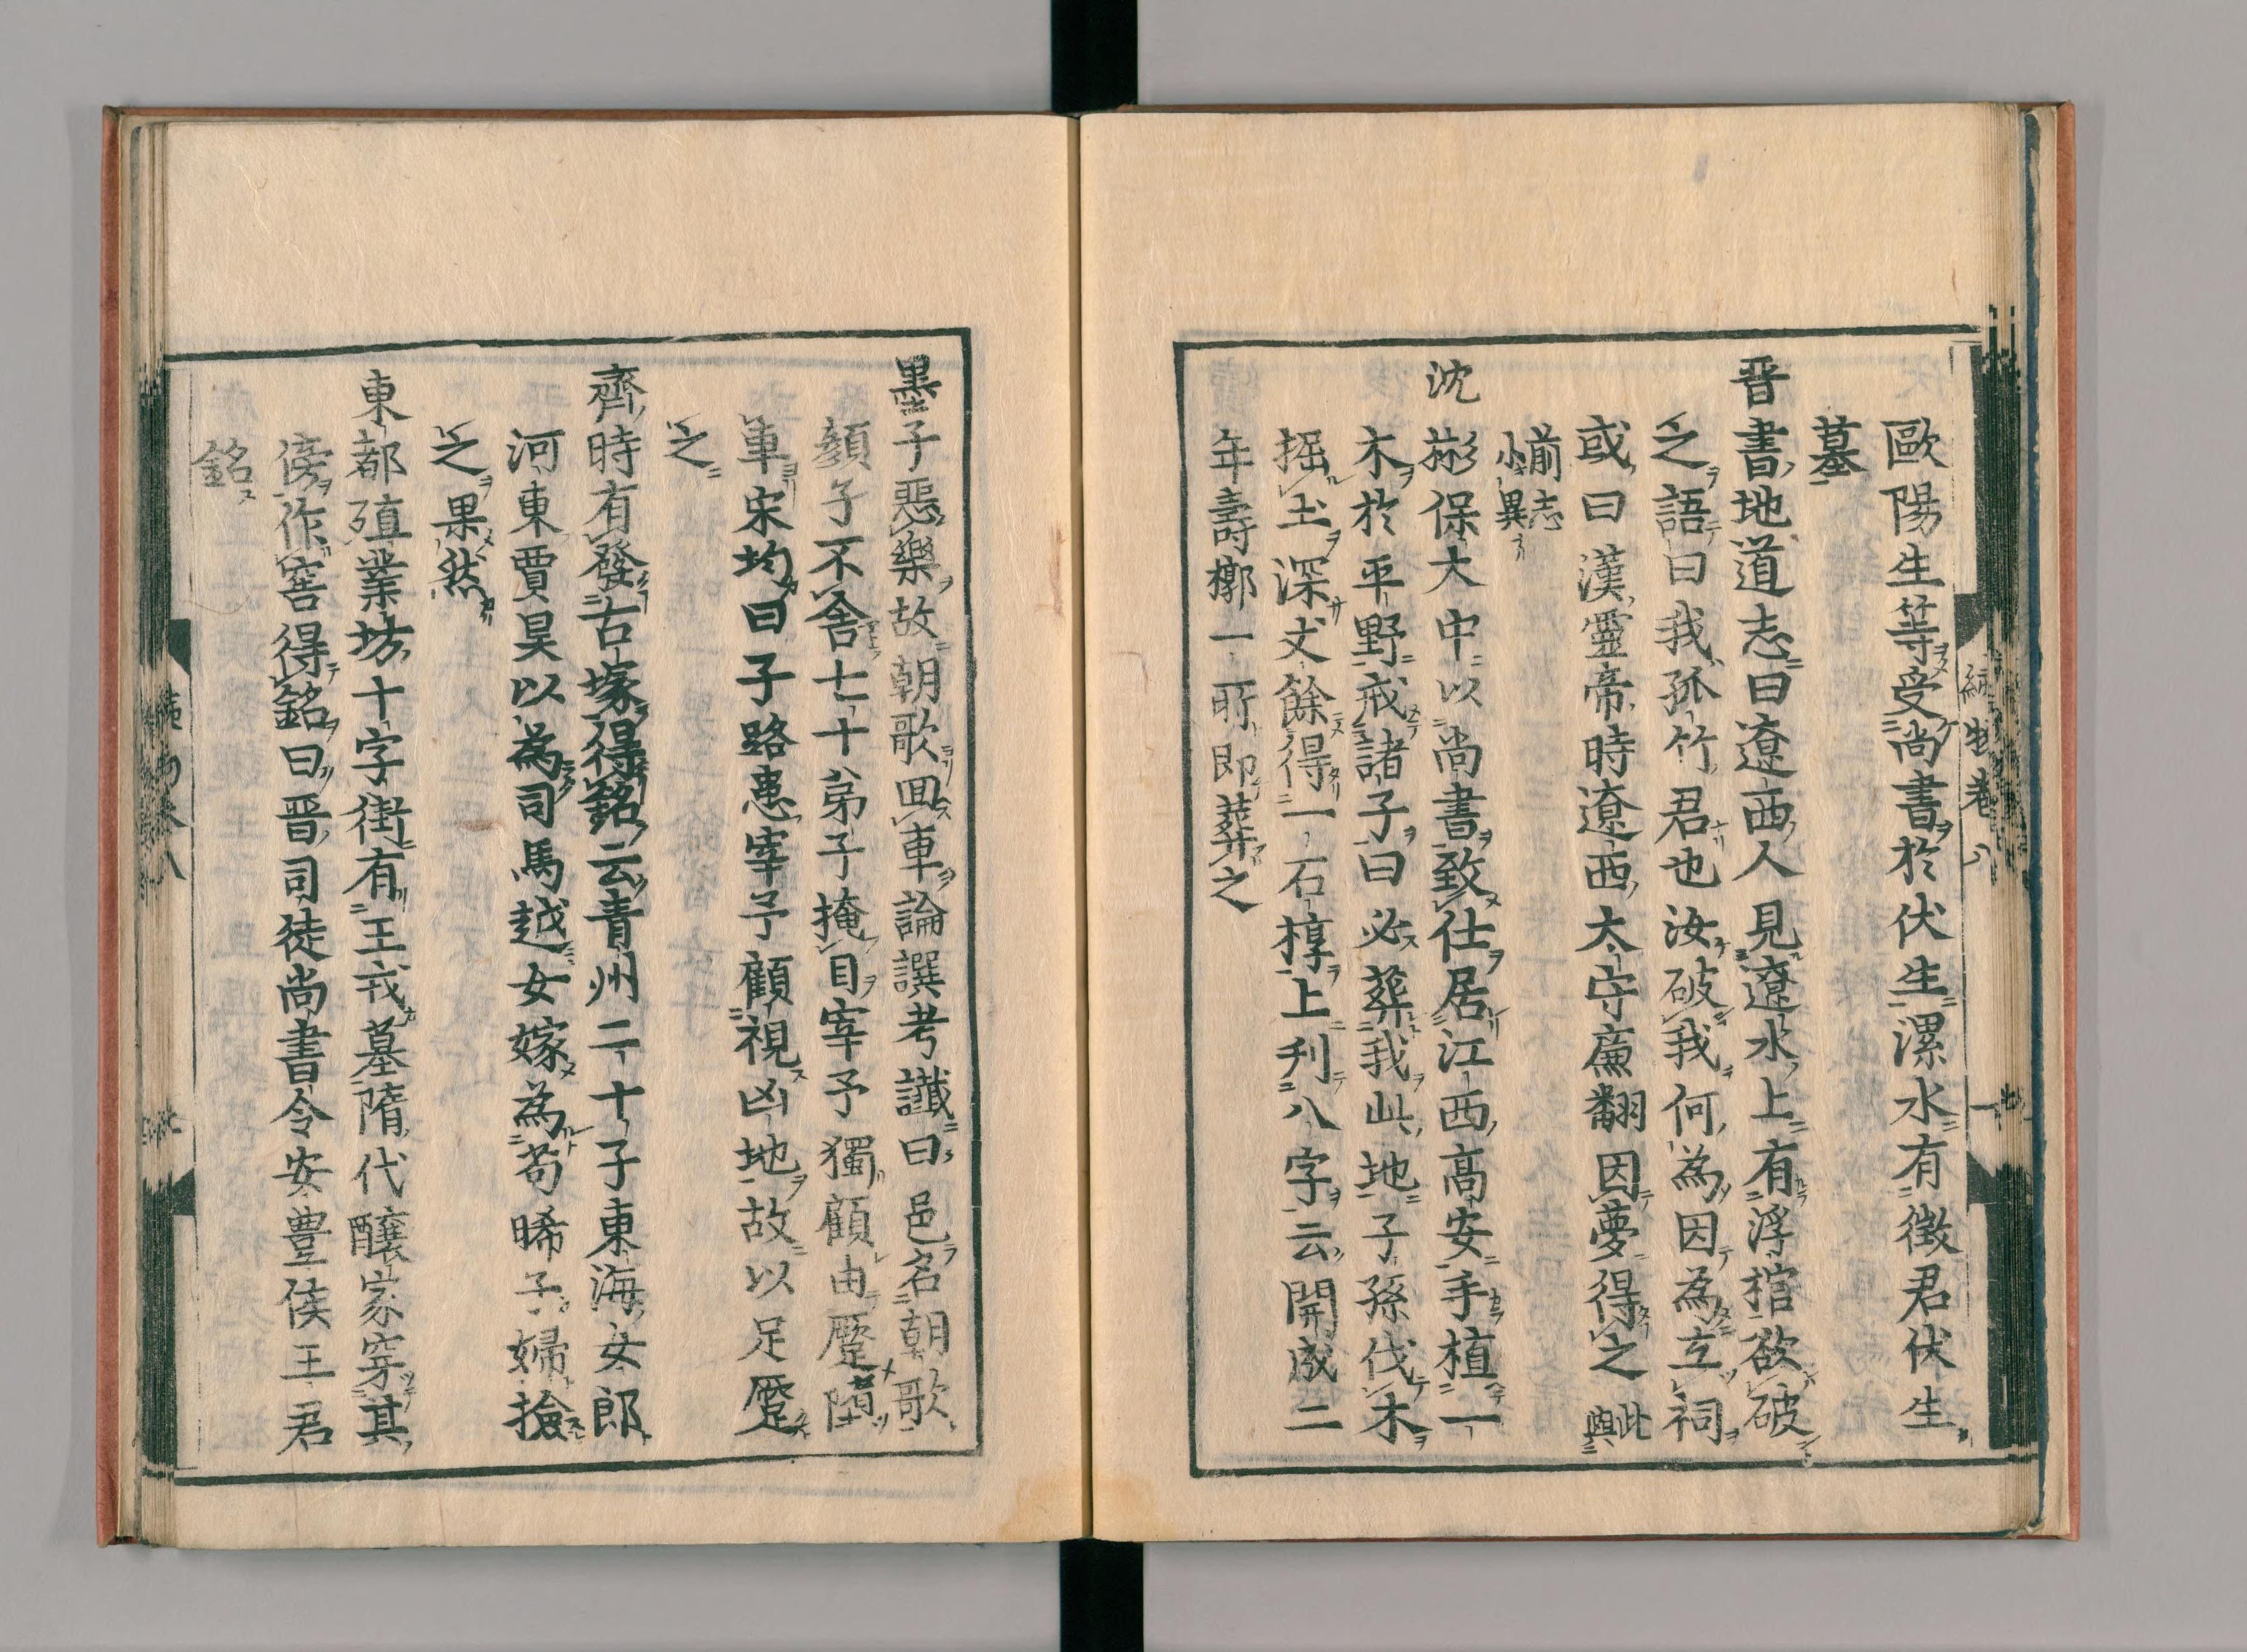 歐陽生等受尚書於伏生漯水有徵君伏生
墓
晉書地道志曰遼西人見遼水上有浮棺欲破
之語曰我孤竹君也汝破我何為因為立祠
或曰漢靈帝時遼西太守廉翻因夢得之此與
前志小異
沈彬保大中以尚書致仕居江西高安手植一
木於平野戒諸子曰必葬我此地子孫伐木
掘土深丈餘得一石椁上刋八字云開成二
年壽槨一所即葬之
續博物志卷八
墨子惡樂故朝歌囬車論譔考讖曰邑名朝歌
顏子不舍七十弟子掩目宰予獨顧由蹙墮
車宋均曰子路患宰予顧視凶地故以足蹙
之
齊時有發古塚得銘云青州二十子東海女郎
河東賈昊以為司馬越女嫁為茍晞子婦撿
之果然
東都殖業坊十字街有王戎墓隋代釀家穿其
傍作窖得銘曰晉司徒尚書令安豊侯王君
銘